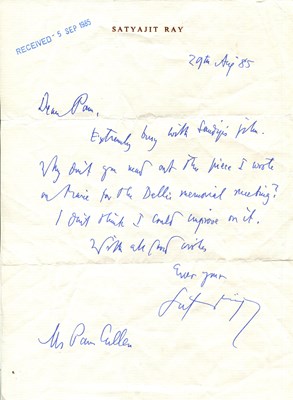 SATYAJIT RAY
RECEIVED - 5 SEP 1985
29th Aug 85
Dear Pam,
Extremely busy with Sandip's film.
Why don't you read out the piece I wrote
on Marie for the Delhi memorial meeting?
I don't think I could improve on it.
With all good wishes
Ever yours
Satyajit Ray
Ms Pam Cullen